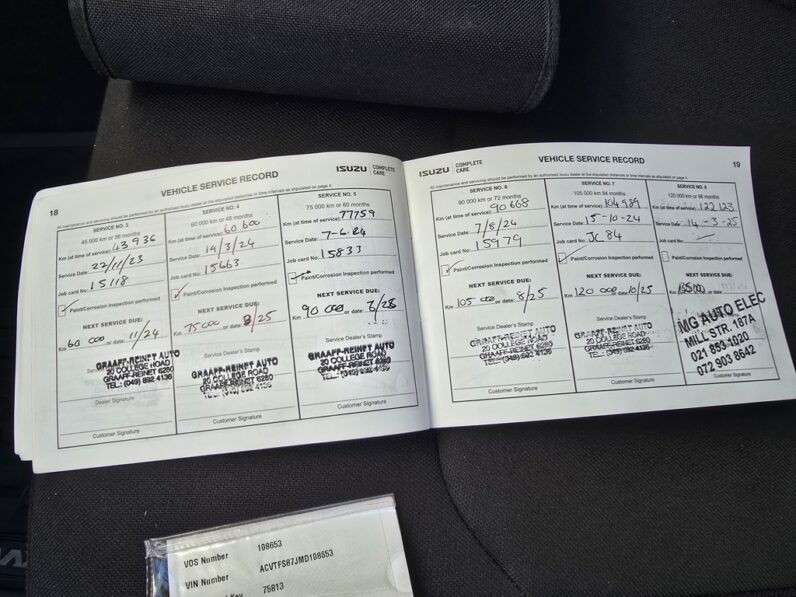 18
VEHICLE SERVICE RECORD
ISUZU COMPLETE CARE
All maintenance and servicing should be performed by an authorised Isuzu dealer at the stipulated distances or time intervals as stipulated on page
SERVICE NO. 3
45 000 km or 36 months
Km (at time of service) 43 936
Service Date: 22/11/23
Job card No: 15118
Paint/Corrosion Inspection performed
NEXT SERVICE DUE:
Km 60 000 or date: 11/24
GRAAFF-REINET AUTO
20 COLLEGE ROAD
GRAAFF-REINET 6280
TEL.: (049) 892 4136
Dealer Signature
Customer Signature
SERVICE NO. 4
60 000 km or 48 months
Km (at time of service) 60 600
Service Date: 19/3/24
Job card No: 15663
Paint/Corrosion Inspection performed
NEXT SERVICE DUE:
Km 75 000 or date: 3/25
Service Dealer's Stamp
GRAAFF-REINET AUTO
20 COLLEGE ROAD
GRAAFF-REINET 6280
TEL.: (049) 892 4136
Customer Signature
SERVICE NO. 5
75 000 km or 60 months
Km (at time of service) 77759
Service Date: 7-6-24
Job card No: 15833
Paint/Corrosion Inspection performed
NEXT SERVICE DUE:
Km 90 000 or date: 6/25
Service Dealer's Stamp
GRAAFF-REINET AUTO
20 COLLEGE ROAD
GRAAFF-REINET 6280
TEL.: (049) 892 4136
Customer Signature
ISUZU COMPLETE CARE
VEHICLE SERVICE RECORD
19
All maintenance and servicing should be performed by an authorised Isuzu dealer at the stipulated distances or time intervals as stipulated on page
SERVICE NO. 6
90 000 km or 72 months
Km (at time of service) 90 668
Service Date: 7/8/24
Job card No: 15979
Paint/Corrosion Inspection performed
NEXT SERVICE DUE:
Km 105 000 or date: 8/25
Service Dealer's Stamp
GRAAFF-REINET AUTO
20 COLLEGE ROAD
GRAAFF-REINET 6280
TEL.: (049) 892 4136
Customer Signature
SERVICE NO. 7
105 000 km or 84 months
Km (at time of service) 104 989
Service Date: 15-10-24
Job card No: JC 84
Paint/Corrosion Inspection performed
NEXT SERVICE DUE:
Km 120 000 or date: 10/25
Service Dealer's Stamp
GRAAFF-REINET AUTO
20 COLLEGE ROAD
GRAAFF-REINET 6280
TEL.: (049) 892 4136
Customer Signature
SERVICE NO. 8
120 000 km or 96 months
Km (at time of service) 122 123
Service Date: 14-3-25
Job card No:
Paint/Corrosion Inspection performed
NEXT SERVICE DUE:
Km 135000 or date:
MG AUTO ELEC
MILL STR. 187A
021 853 1020
072 903 8642
Customer Signature
VOS Number 108653
VIN Number ACVTFS87JMD108653
75813